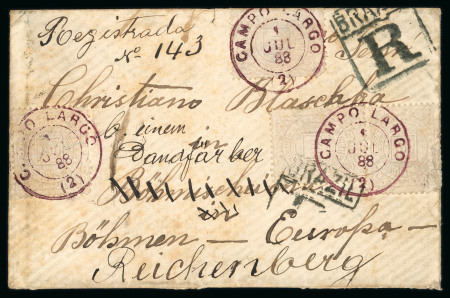 Registrada
No 143
CAMPO LARGO
1
JUL
88
(2)
BRAZIL
R
Christiano Blaschka
b einem
in
Dandfärber
CAMPO LARGO
JUL
88
(2)
CAMPO LARGO
1
JUL
88
(2)
BRAZIL
in
Böhmen — Europa —
Reichenberg